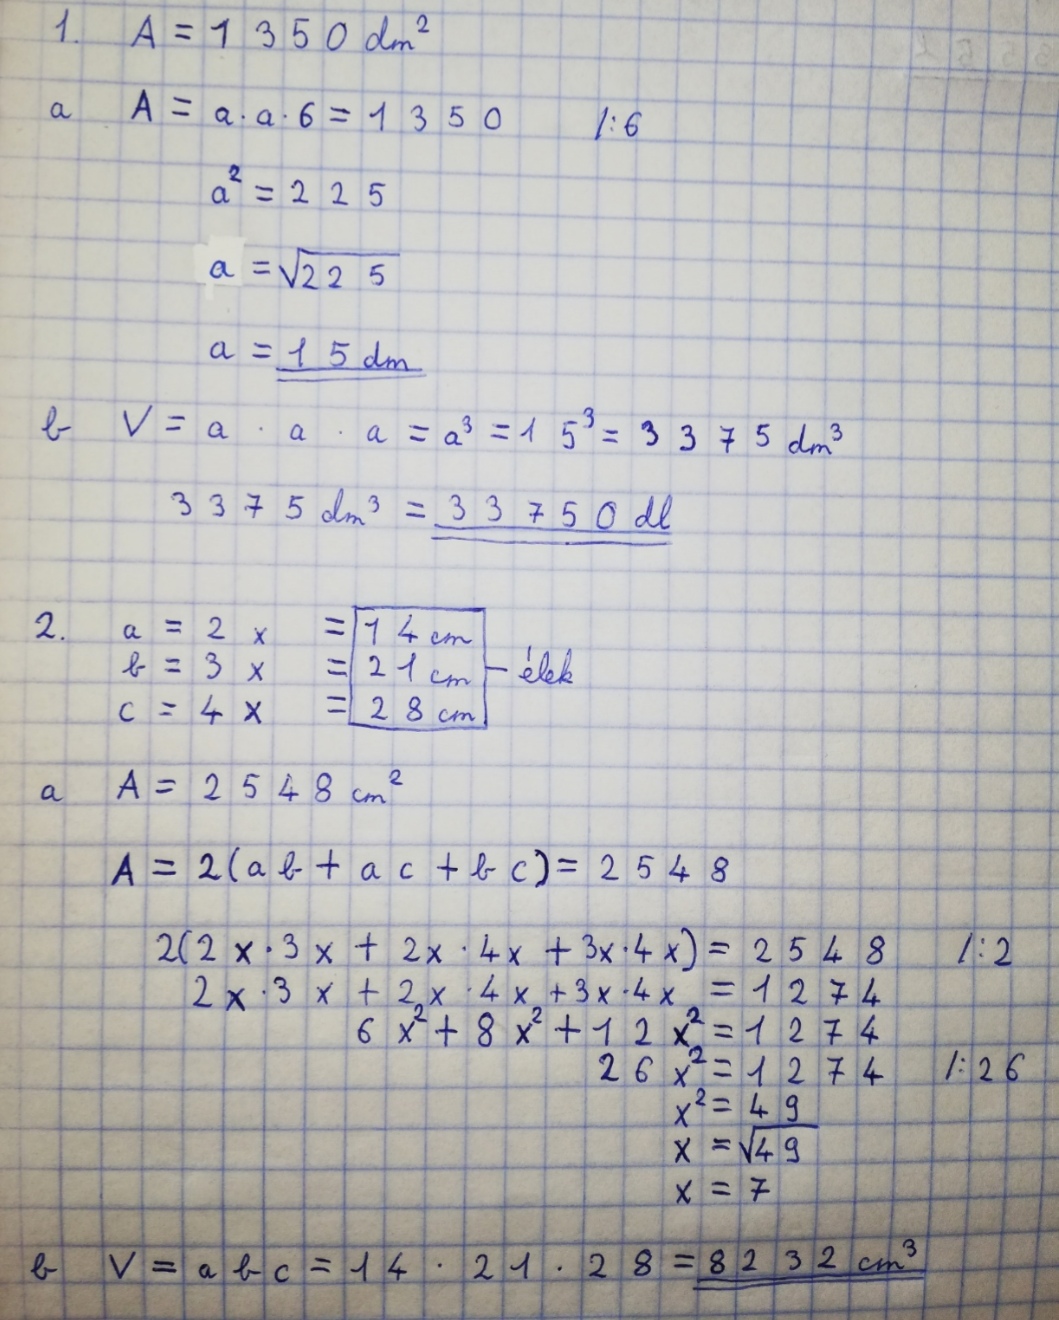 1. A = 1350 dm²
a A = a·a·6 = 1350 /:6
a² = 225
a = √225
a = 15 dm
b V = a · a · a = a³ = 15³ = 3375 dm³
3375 dm³ = 33750 dl
2. a = 2x = 14 cm
b = 3x = 21 cm – élek
c = 4x = 28 cm
a A = 2548 cm²
A = 2(ab + ac + bc) = 2548
2(2x·3x + 2x·4x + 3x·4x) = 2548 /:2
2x·3x + 2x·4x + 3x·4x = 1274
6x² + 8x² + 12x² = 1274
26x² = 1274 /:26
x² = 49
x = √49
x = 7
b V = abc = 14 · 21 · 28 = 8232 cm³